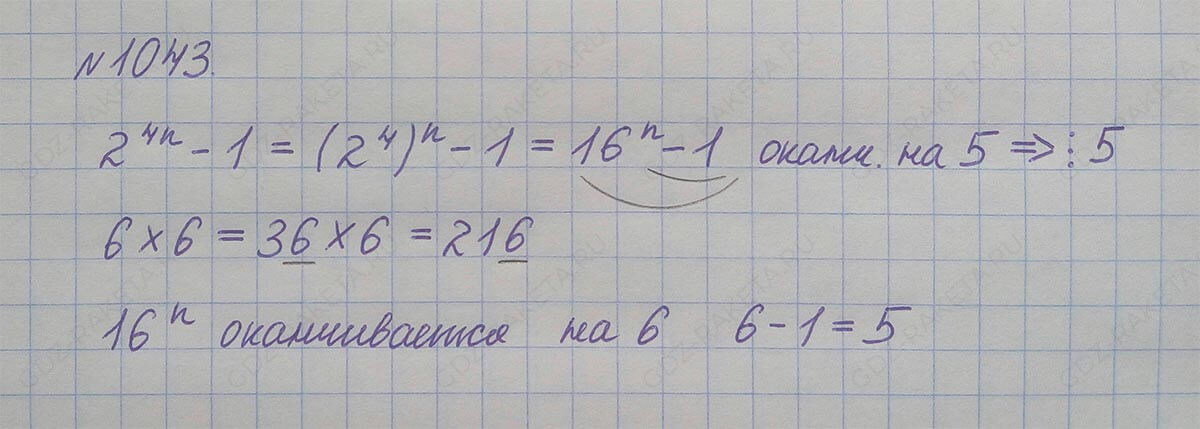 №1043.
2⁴ⁿ - 1 = (2⁴)ⁿ - 1 = 16ⁿ - 1 оканч. на 5 ⇒ ⋮ 5
6 × 6 = 36 × 6 = 216
16ⁿ оканчивается на 6 6 - 1 = 5
GDZ-RAKETA.RU